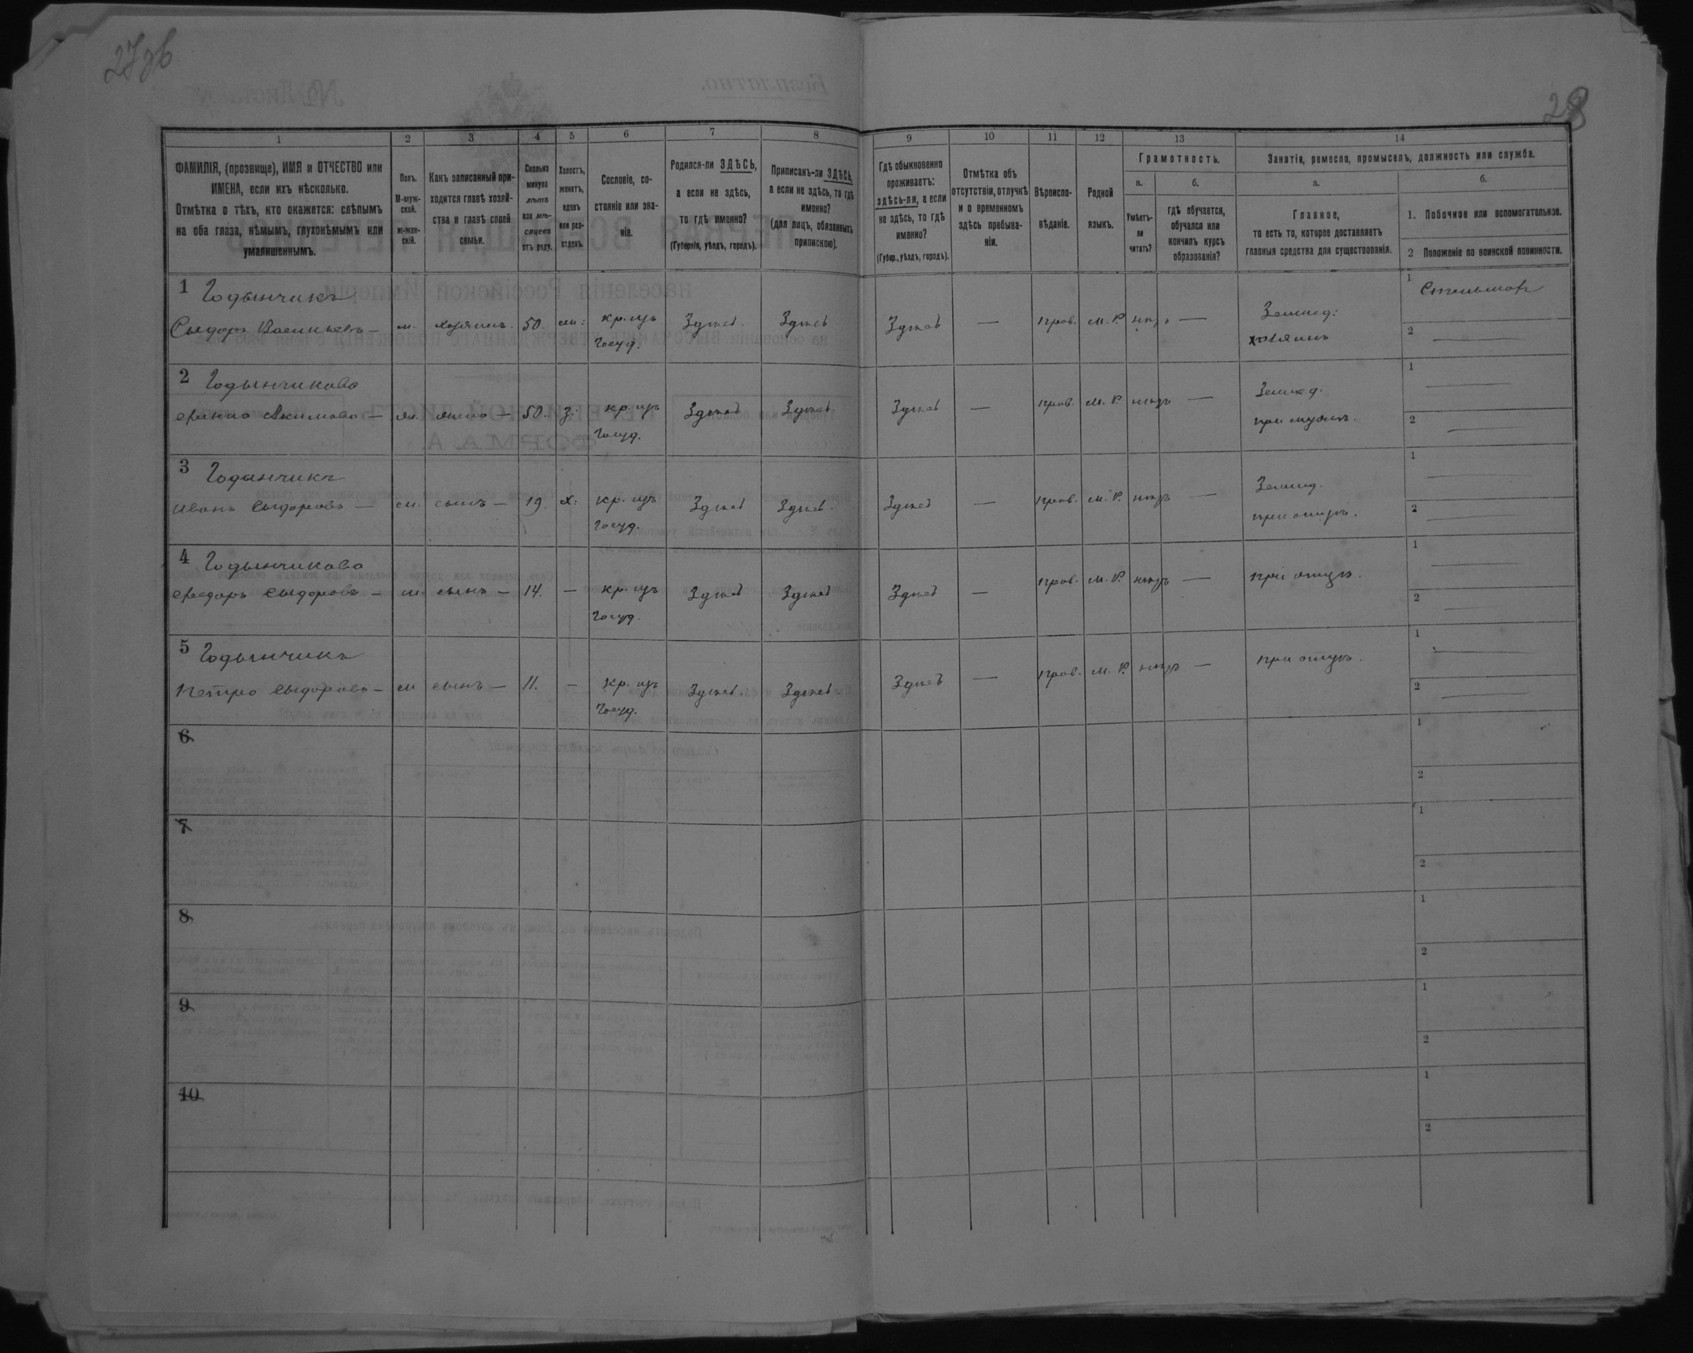 27об
28
1
2
3
4
5
6
7
8
9
10
11
12
13
14
ФАМИЛІЯ, (прозвище), ИМЯ и ОТЧЕСТВО или
ИМЕНА, если ихъ нѣсколько.
Отмѣтка о тѣхъ, кто окажется: слѣпымъ
на оба глаза, нѣмымъ, глухонѣмымъ или
умалишеннымъ.
Полъ.
М-муж-
ской.
ж-жен-
скій.
Какъ записанный при-
ходится главѣ хозяй-
ства и главѣ своей
семьи.
Сколько
минуло
лѣтъ
или мѣ-
сяцевъ
отъ роду.
Холостъ,
женатъ,
вдовъ
или раз-
веденъ.
Сословіе, со-
стояніе или зва-
ніе.
Родился-ли ЗДѢСЬ,
а если не здѣсь,
то гдѣ именно?
(Губернія, уѣздъ, городъ).
Приписанъ-ли ЗДѢСЬ,
а если не здѣсь, то гдѣ
именно?
(для лицъ, обязанныхъ
припискою).
Гдѣ обыкновенно
проживаетъ:
здѣсь-ли, а если
не здѣсь, то гдѣ
именно?
(Губер., уѣздъ, городъ).
Отмѣтка объ
отсутствіи, отлучкѣ
и о временномъ
здѣсь пребыва-
ніи.
Вѣроиспо-
вѣданіе.
Родной
языкъ.
Грамотность.
а.
б.
Умѣетъ-
ли
читать?
гдѣ обучается,
обучался или
кончилъ курсъ
образованія?
Занятія, ремесло, промыселъ, должность или служба.
а.
б.
Главное,
то есть то, которое доставляетъ
главныя средства для существованія.
1. Побочное или вспомогательное.
2 Положеніе по воинской повинности.
1 Годынчикъ
Сыдоръ — м. хозяинъ. 50. ж: кр. изъ госуд. Здѣсь. Здѣсь Здѣсь — прав. м. Р. нѣтъ — Землед: хозяинъ
1 Стельмахъ
2 —
2 Годынчикова
Акимова — ж. жена — 50. з: кр. изъ госуд. Здѣсь Здѣсь. Здѣсь — прав. м. Р. нѣтъ — Землед. при мужѣ.
1 —
2 —
3 Годынчикъ
Иванъ Сыдоровъ — м. сынъ — 19. х: кр. изъ госуд. Здѣсь Здѣсь. Здѣсь — прав. м. Р. нѣтъ — Землед. при отцѣ.
1 —
2 —
4 Годынчиково
Сыдоровъ — м. сынъ — 14. — кр. изъ госуд. Здѣсь Здѣсь Здѣсь — прав. м. Р. нѣтъ — при отцѣ.
1 —
2 —
5 Годынчикъ
Петро Сыдоровъ — м сынъ — 11. — кр. изъ госуд. Здѣсь. Здѣсь Здѣсь — прав. м. Р. нѣтъ — при отцѣ.
1 —
2 —
6
1
2
7
1
2
8
1
2
9
1
2
10
1
2